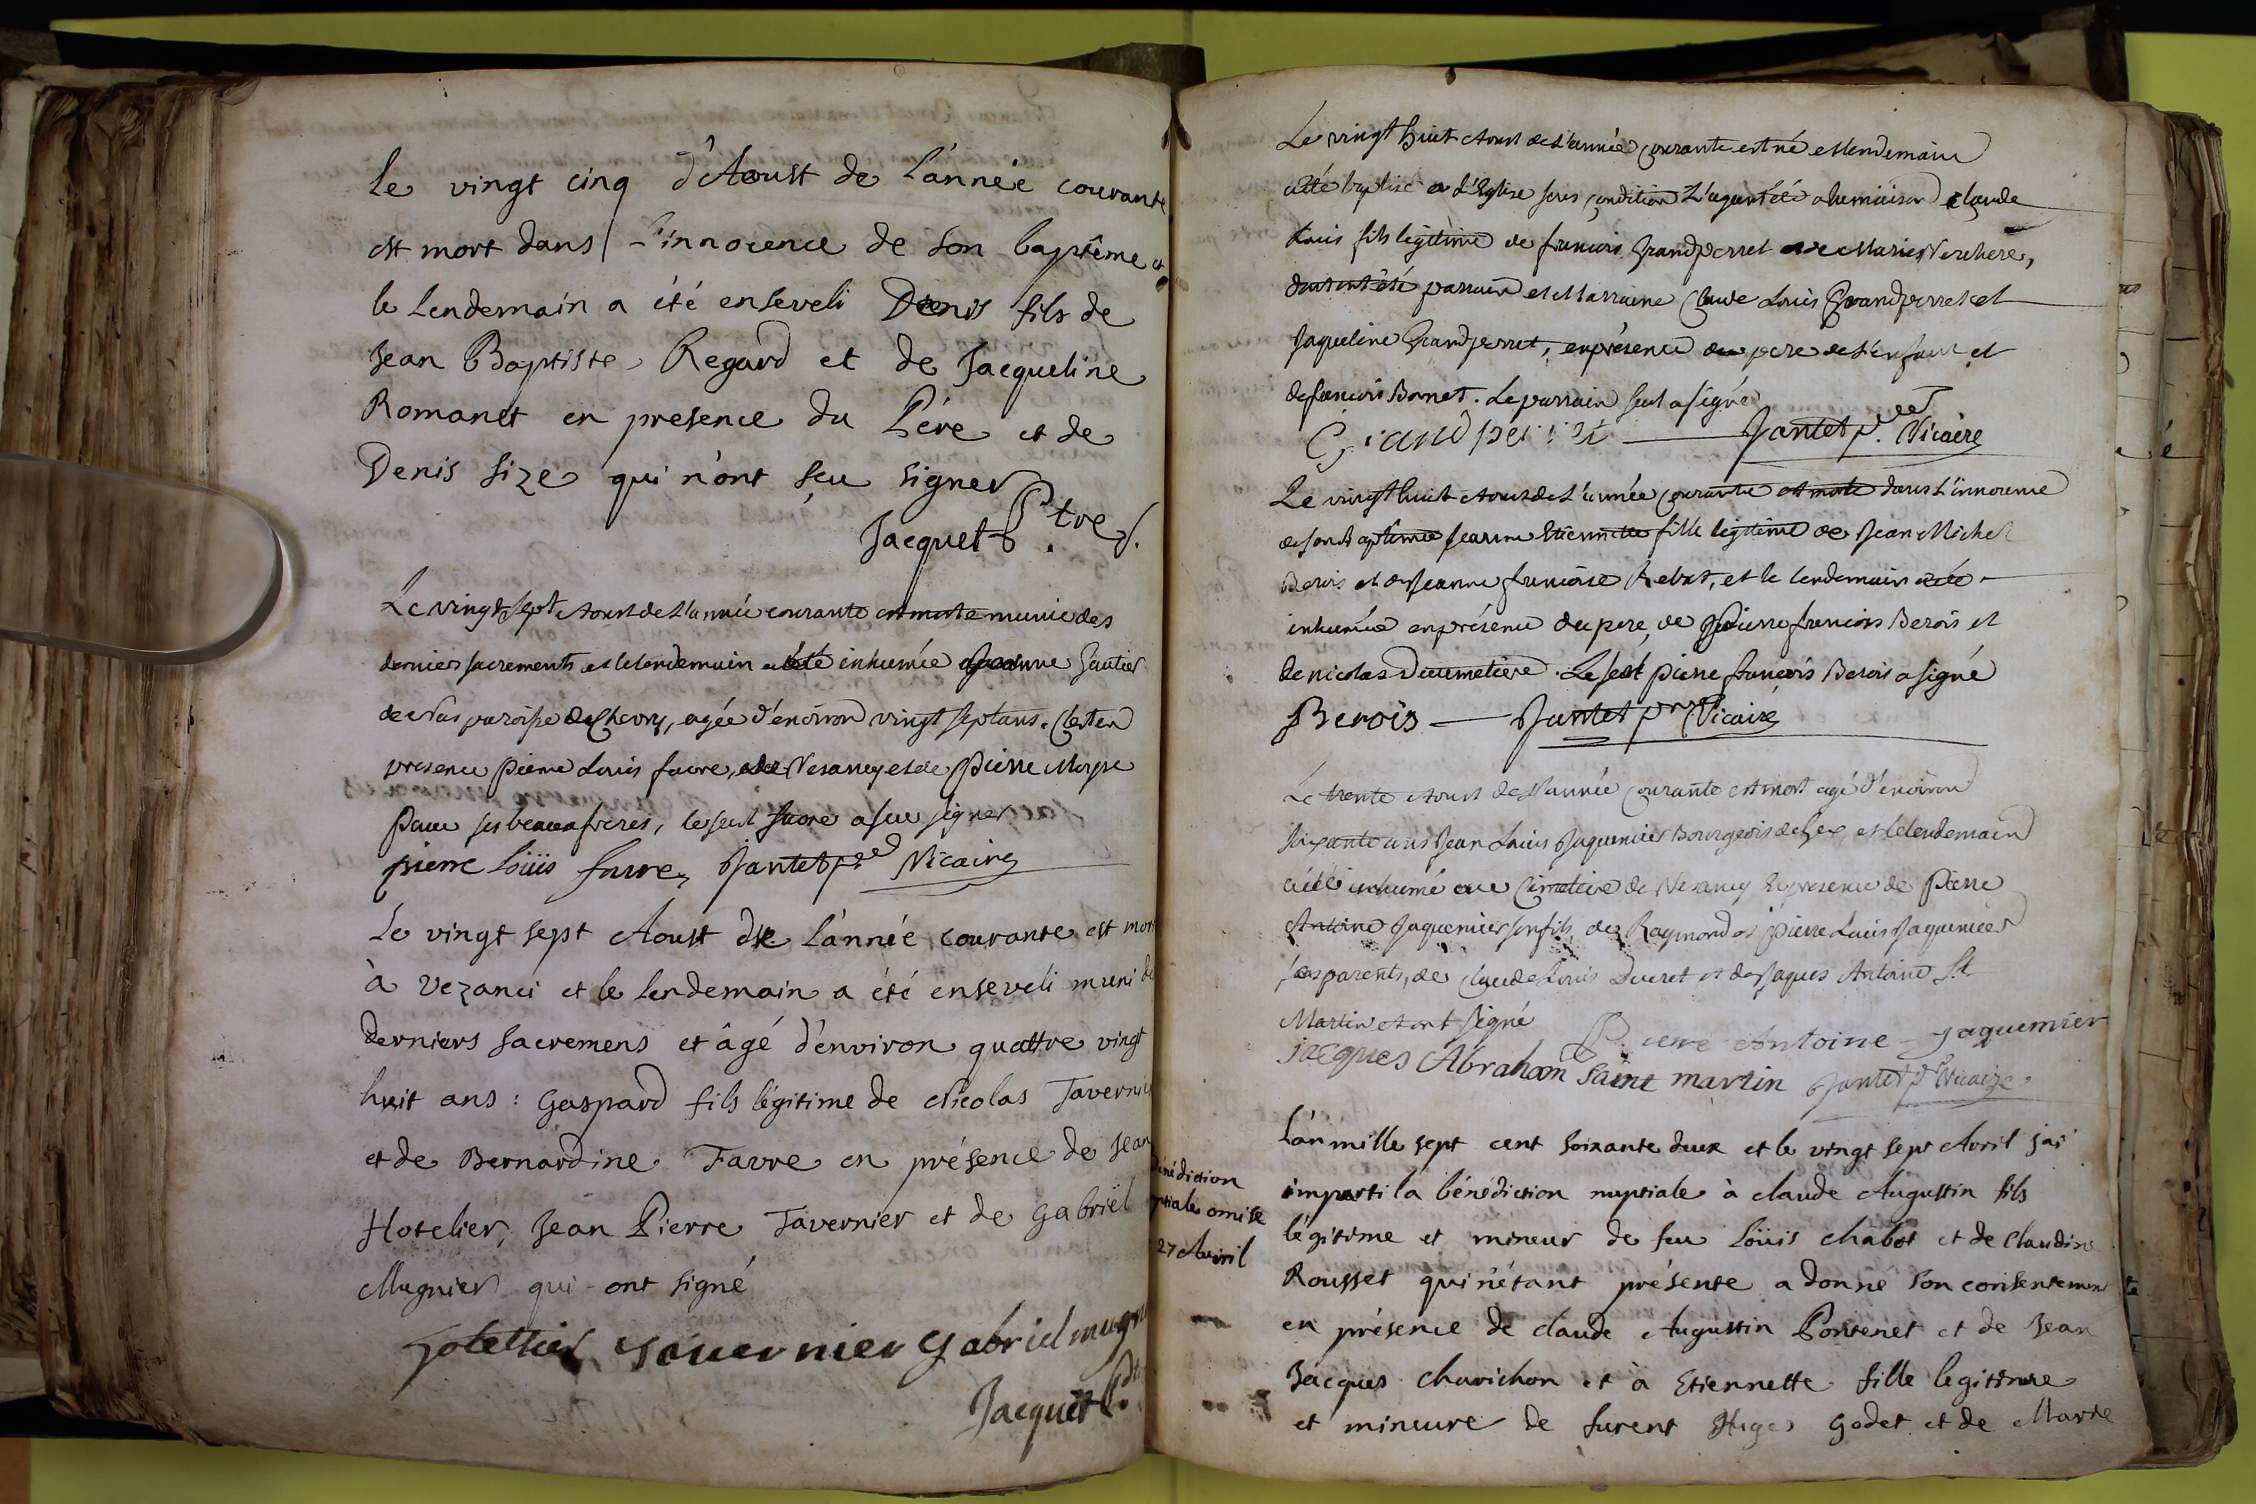 Le vingt cinq d'Aoust de L'année courante
est mort dans L'innocence de son baptême et
le Lendemain a été enseveli Denis fils de
Jean Baptiste Regard et de Jacqueline
Romanet en presence du Pére et de
Denis Size qui n'ont scu signer
Jacquet Ptre.
Le vingt sept Aoust de L'année courante est morte munie des
derniers sacrements et le lendemain a été inhumée Jeanne Gautier
de paroisse de Chevry, agée d'environ vingt sept ans. C'est en
presence pierre Louis favre, de Vesancy et de pierre
ses beaux freres, le seul favre a sçu signer
pierre Loüis favre Jantet ptre Vicaire
Le vingt sept Aoust de L'année courante est mort
à Vezanci et le lendemain a été enseveli muni de
derniers sacremens et âgé d'environ quattre vingt
huit ans : Gaspard fils légitime de Nicolas Tavernier
et de Bernardine Favre en présence de Jean
Hotelier, Jean Pierre Tavernier et de Gabriël
Mugnier qui ont signé
hotellier tavernier gabriel mugn
Jacquet
Le vingt huit Aoust de L'année courante est né et lendemain
a été baptisé a L'Eglise sous condition L'ayant été a la maison Claude
Louis fils légitime de francois Grandperret et de Marie Verchere,
dont ont été parrain et Marraine Claude Louis Grandperret et
Jaqueline Grandperret, en présence du pere de L'enfant et
de francois Bornet. Le parrain seul a signé
Grandperret Jantet ptre Vicaire
Le vingt huit Aoust de L'année courante est morte dans L'innocence
de son Baptême Jeanne Etiennette fille légitime de Jean Michel
Berois et de Jeanne françoise Rebut, et le lendemain a été
inhumée en présence du pere, de pierre francois Berois et
de nicolas Dumetiere. Le seul pierre francois Berois a signé
Berois Jantet prtre Vicaire
Le trente Aoust de L'année courante est mort agé d'environ
soixante ans Jean Louis Jaquemier Bourgeois de Gex et le lendemain
a été inhumé au Cimetiere de Vesancy En presence de Pierre
Antoine Jaquemier son fils, de Raymond et pierre Louis Jaquemier
ses parents, de Claude Louis Ducret et de Jaques Antoine St
Martin et ont signé Pierre Antoine Jaquemier
jacques Abraham Saint martin Jantet ptre Vicaire
Bénédiction
nuptiale omise
27 Avril
L'an mille sept cent soixante deux et le vingt sept Avril j'ai
imparti la bénédiction nuptiale à claude Augustin fils
légitime et mineur de feu Loüis chabot et de Claudine
Rousset qui n'étant présente a donné son consentement
en présence de claude Augustin Pontenet et de Jean
Jacques chavichon et à Etiennette fille legitime
et mineure de furent Huges Godet et de Marie